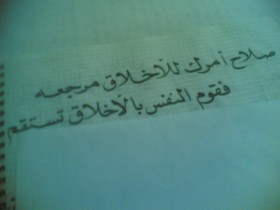 صلاح أمرك للأخلاق مرجعه
فقوم النفس بالأخلاق تستقم